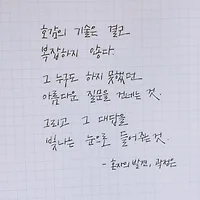 호감의 기술은 결코
복잡하지 않다.
그 누구도 하지 못했던
아름다운 질문을 건네는 것.
그리고 그 대답을
빛나는 눈으로 들어주는 것.
- 혼자의 발견, 곽정은